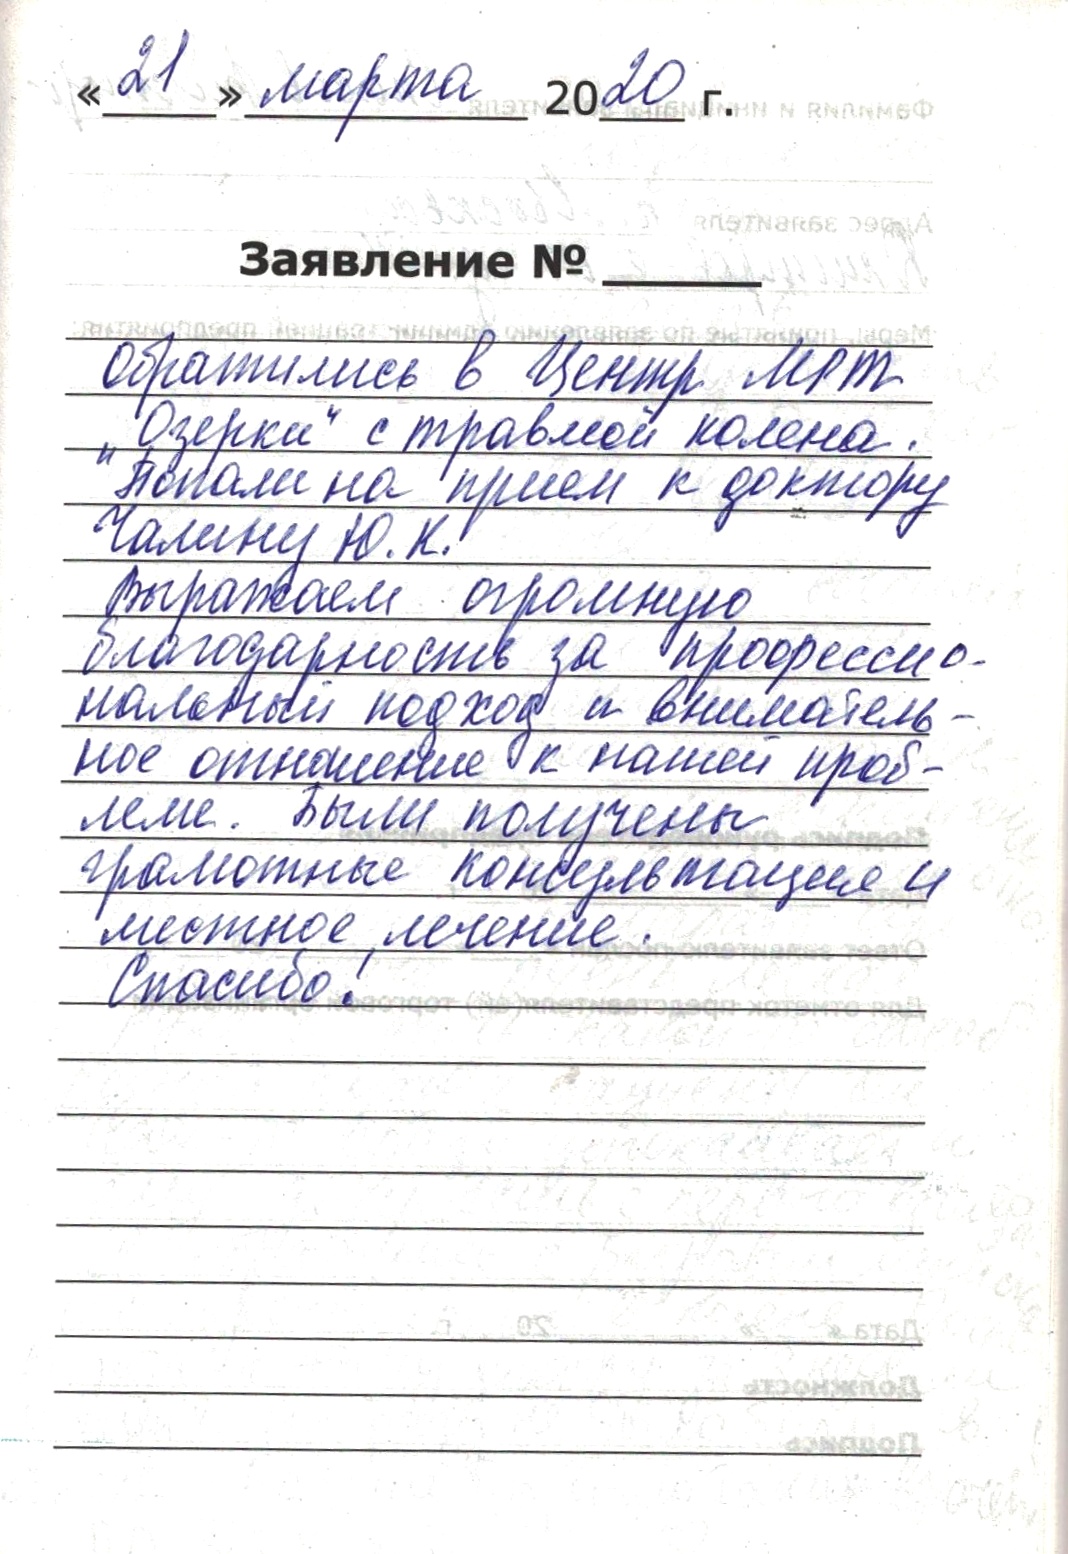 « 21 » марта 2020 г.
Заявление № ______
Обратились в Центр МРТ
„Озерки“ с травмой колена.
Попали на прием к доктору
Чалину Ю. К.
Выражаем огромную
благодарность за профессио-
нальный подход и вниматель-
ное отношение к нашей проб-
леме. Были получены
грамотные консультации и
местное лечение.
Спасибо!